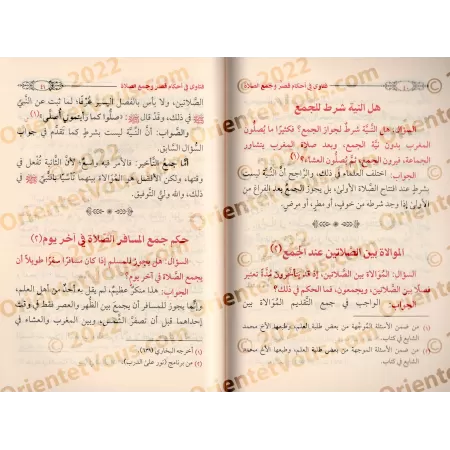 فتاوى في أحكام قصر وجمع الصلاة
هل النية شرط للجمع
السؤال: هل النِّيَّة شرطٌ لجواز الجمع؟ فكثيرًا ما يُصلُّون
المغرب بدون نيَّة الجمع، وبعد صلاة المغرب يتشاور
الجماعة، فيرون الجمع، ثم يُصلُّون العشاء؟(١)
الجواب: اختلف العلماء في ذلك، والراجح أنَّ النِّيَّة ليست
بشرطٍ عند افتتاح الصلاة الأولى، بل يجوزُ الجمعُ بعد الفراغ من
الأولى إذا وجد شرطه من خوفٍ، أو مطرٍ، أو مرضٍ.
الموالاة بين الصلاتين عند الجمع(٢)
السؤال: المُوَالاة بين الصَّلاتين، إذ قد يتأخرون مُدَّة تعتبر
فصلًا بين الصَّلاتين، ويجمعون، فما الحكم في ذلك؟
الجواب: الواجب في جمع التقديم المُوَالاة بين
(١) من ضمن الأسئلة المُوجَّهة من بعض طلبة العلم، وطبعها الأخ محمد
الشايع في كتاب.
(٢) من ضمن الأسئلة الموجهة من بعض طلبة العلم، وطبعها الأخ محمد
الشايع في كتاب.
فتاوى في أحكام قصر وجمع الصلاة
الصَّلاتين، ولا بأس بالفصل اليسير عُرْفًا؛ لما ثبت عن النَّبيِّ
ﷺ في ذلك، وقدْ قال ﷺ: «صلُّوا كما رأيتموني أُصلِّي»(١)
والصَّواب: أنَّ النِّيَّة ليست بشرطٍ كما تقدَّم في جواب
السؤال السابق.
أمَّا جمعُ التأخير: فالأمر فيه واسعٌ؛ لأنَّ الثَّانية تُفعل في
وقتها، ولكن الأفضل هو المُوَالاة بينهما تأسِّيًا بالنَّبيِّ ﷺ في
ذلك، والله وليُّ التَّوفيق.
حكم جمع المسافر الصلاة في آخر يوم(٢)
السؤال: هل يجوزُ للمسلم إذا كان مسافرًا سفرًا طويلًا أن
يجمع الصَّلاة في آخر يوم؟
الجواب: هذا منكرٌ عظيمٌ، لم يقل به أحدٌ من أهل العلم،
وإنَّما يجوز للمسافر أن يجمع بين الظُّهر والعصر فقط في وقت
إحداهما قبل أن تصفرَّ الشَّمس، وبين المغرب والعشاء في
(١) أخرجه البخاري (٦٣١).
(٢) من برنامج (نور على الدرب).
Orientetvous.com
© 2022